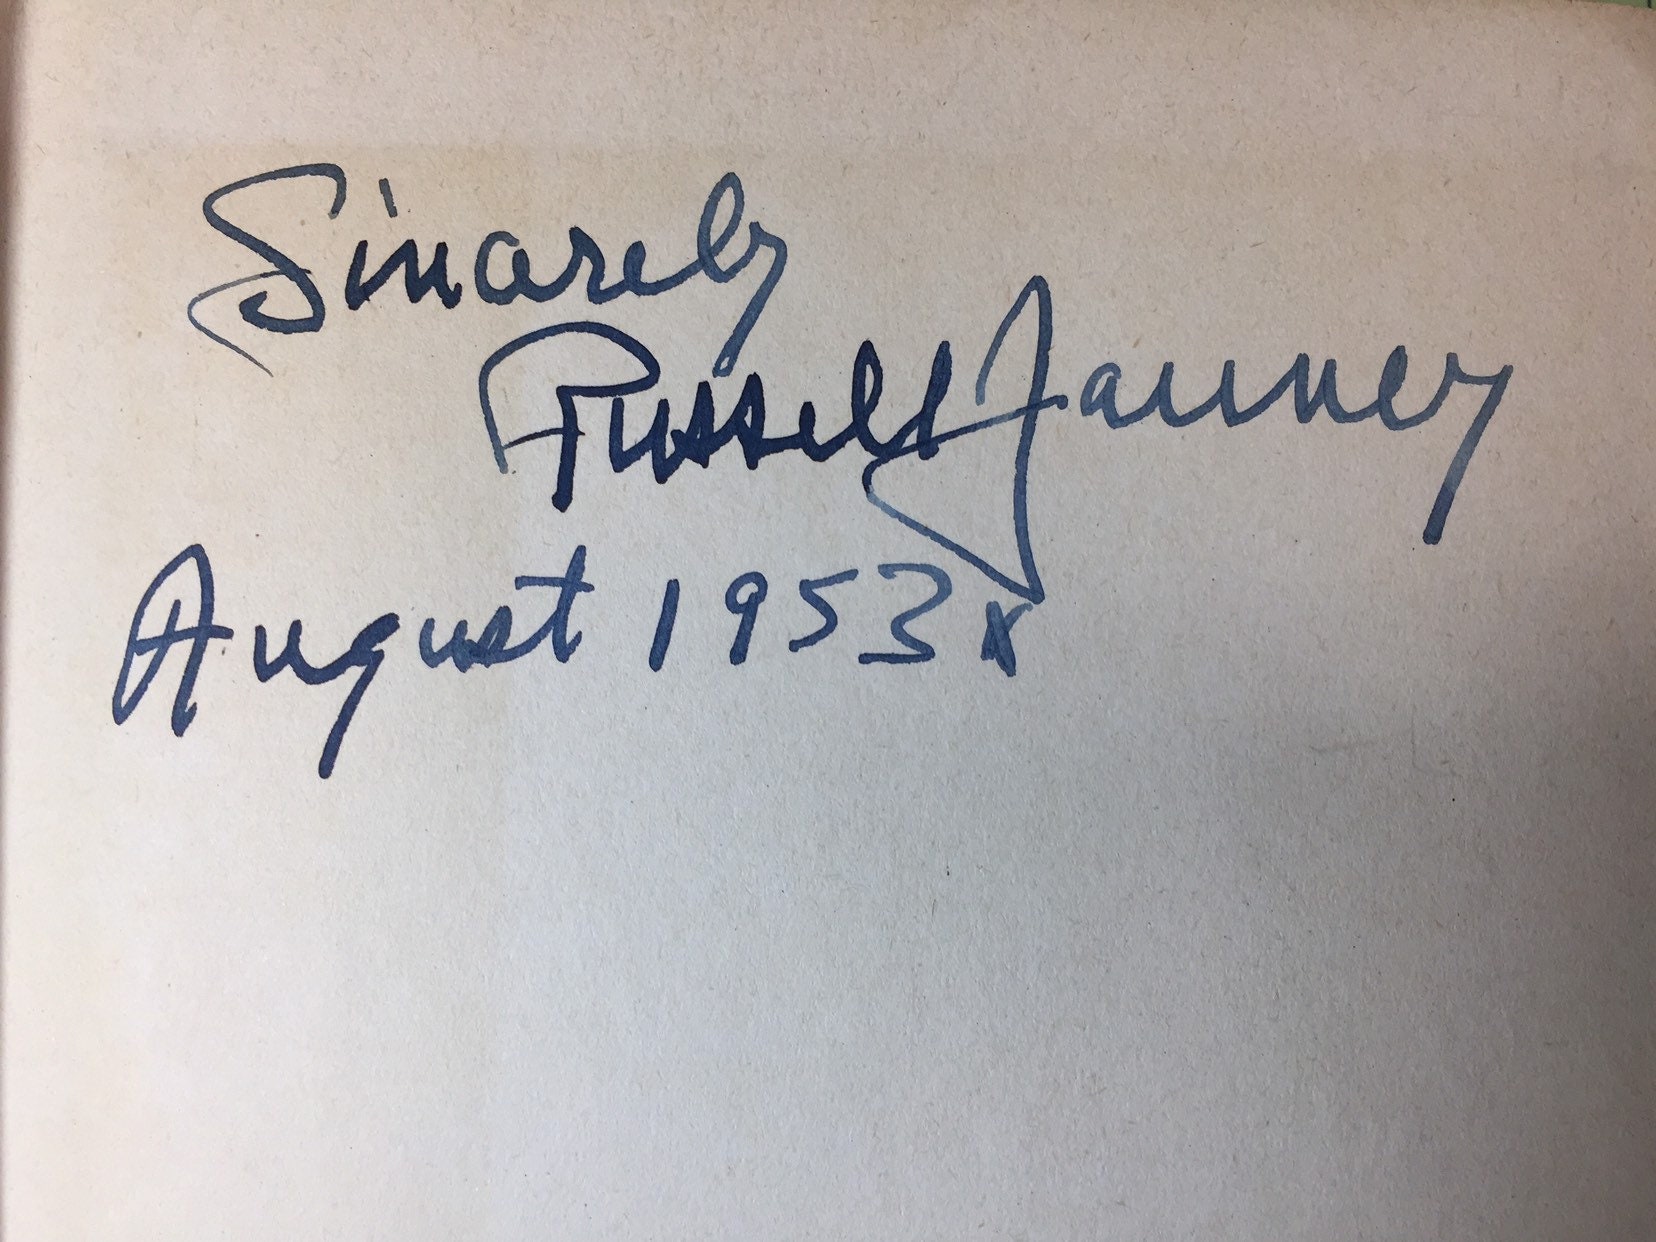 Sincerely
Russell Janney
August 1953x